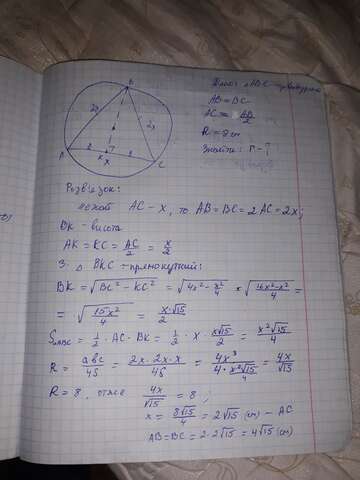 Дано: △ABC –
AB = BC
AC = AB/2
R = 8 см
Знайти: r - ?
B
2x
2x
A
C
K
x
Розв'язок:
нехай AC – x, то AB = BC = 2AC = 2x;
BK – висота
AK = KC = AC/2 = x/2
З △ BKC – прямокутний:
BK = √(BC² – KC²) = √(4x² – x²/4) = √((16x² – x²)/4) =
= √(15x²/4) = x√15/2
S△ABC = 1/2 · AC · BK = 1/2 · x · x√15/2 = x²√15/4
R = abc/4S = 2x · 2x · x/4S = 4x³/(4 · x²√15/4) = 4x/√15
R = 8, отже 4x/√15 = 8;
x = 8√15/4 = 2√15 (см) – AC
AB = BC = 2 · 2√15 = 4√15 (см)